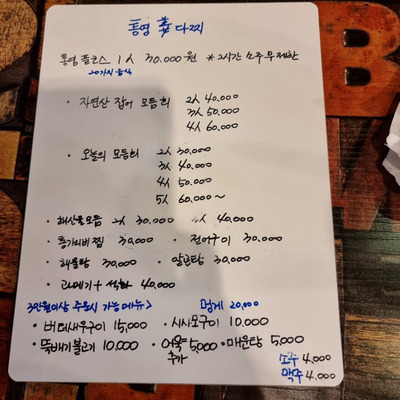 통영 다찌
통영 풀코스 1人 30.000원 *2시간 소주 무제한
20가지 음식
· 자연산 잡어 모듬회 2人 40.000
3人 50.000
4人 60.000
· 오늘의 모듬회 2人 30.000
3人 40.000
4人 50.000
5人 60.000~
· 해산물모듬 2人 30.000 4人 40.000
· 통가리비찜 30.000 · 전어구이 30.000
· 해물탕 30.000 · 알곤탕 30.000
· 과메기+석화 40.000
3만원이상 주문시 가능메뉴> 멍게 20,000
· 버터새우구이 15,000 · 시샤모구이 10.000
· 뚝배기불고기 10,000 · 어묵 5,000 · 매운탕 5,000
추가 소주 4.000
맥주 4.000